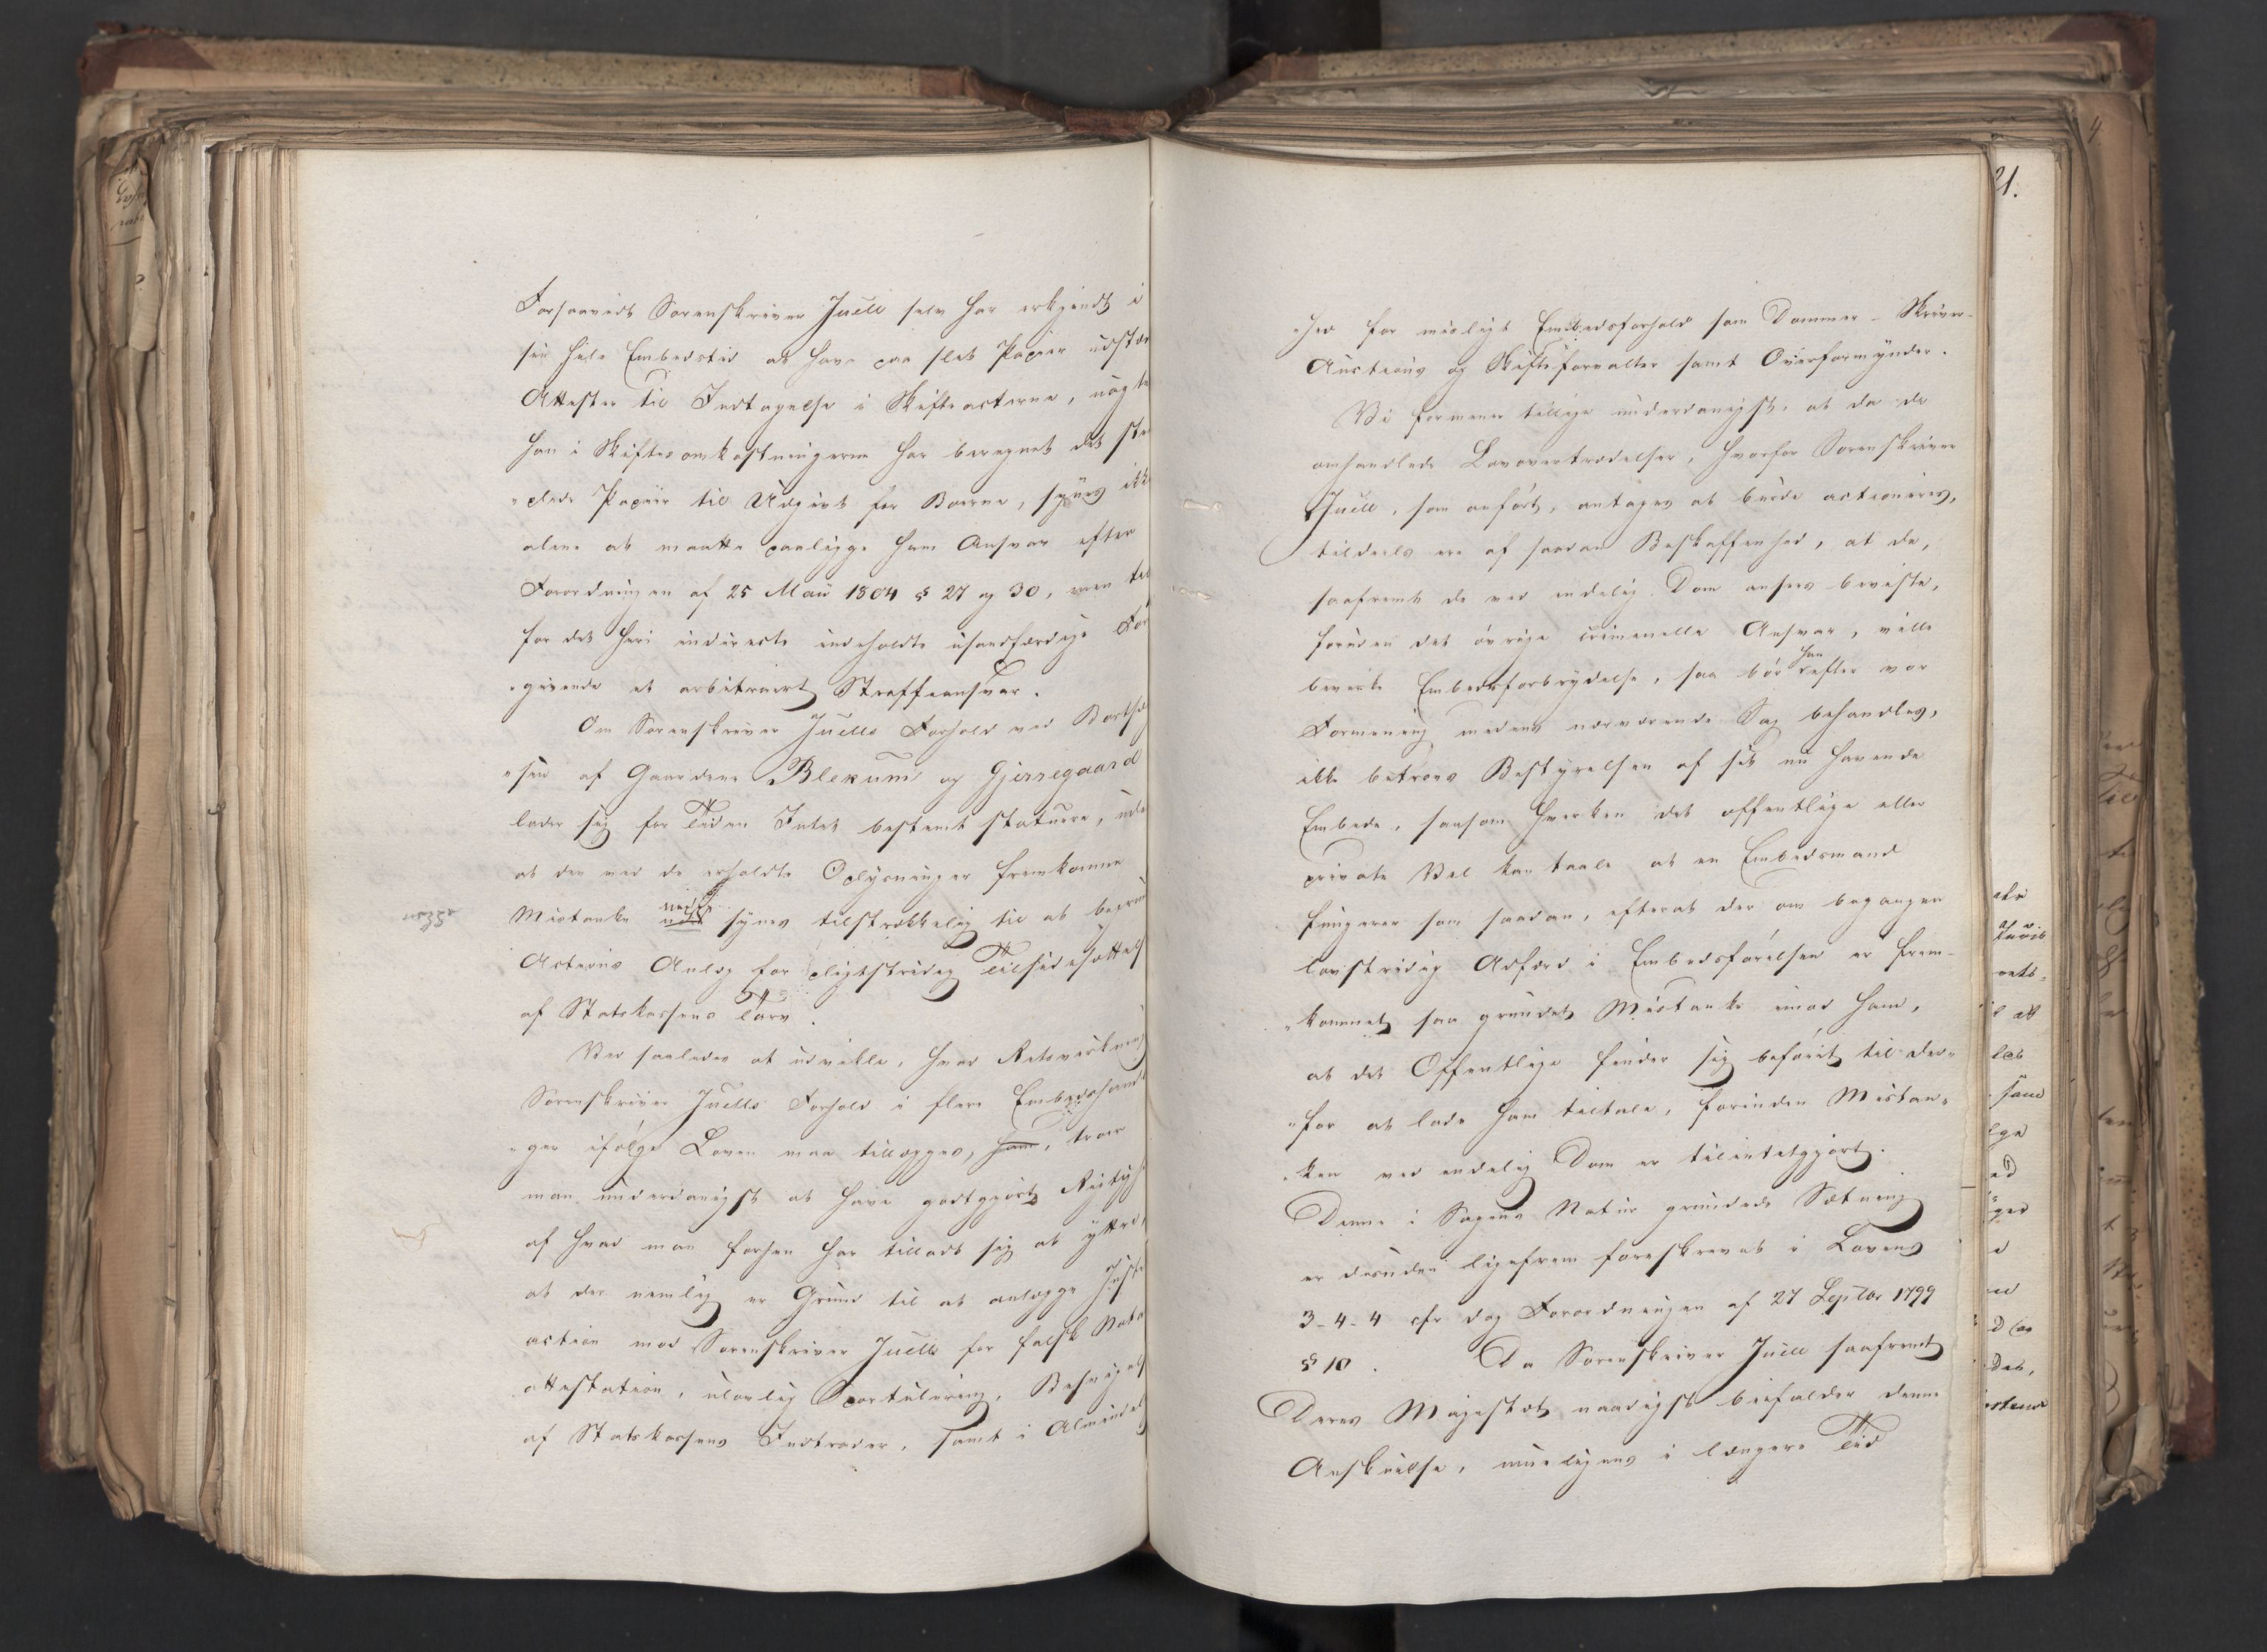 Forsaavidt Sorenskriver Juell selv har erkjendt i
sin hele Embedstid at have paa slet Papiir udstæd
Attester til Indtagelse i Skifteacterne, uagte
han i Skiftesomkostningerne har beregnet det ste
„plede Papiir til Udgivt for Boerne, synes ikk
alene at maatte paaligge ham Ansvar efter
Forordningen af 25 Maii 1804 § 27 og 30, men til
for det heri indirecte indeholdte usandfærdige For
„givende et arbitrairt Straffeansvar.
Om Sorenskriver Juells Forhold ved Bortsæ
„sen af Gaardene Blekum og Gjerregaard
lader sig for Tiden Intet bestemt statuere, ude
at den ved de erholdte Oplysninger fremkomne
Mistanke synes tilstrækkelig til at begrun
Actions Anlæg for pligtstridig Tilsidesættels
af Statskassens Tarv.
Ved saaledes at udvikle, hvad Retsvirkning
Sorenskriver Juells Forhold i flere Embedshandl
„ger ifølge Loven maa tillægges, ham, troer
man underdanigst at have godtgjort Rigtigh
af hvad man forhen har tilladt sig at yttre,
at der nemlig er Grund til at anlægge Justi
action mod Sorenskriver Juell for falsk Nota
attestation, ulovlig Sportulering, Besvigels
af Statskassens Indtræder, samt i Almindel
„hed for misligt Embedsforhold som Dommer - Skriver-
Auctions og Skifteforvalter samt Overformynder.
Vi formener tillige underdanigst, at da de
omhandlede Lovovertrædelser, hvorfor Sorenskriver
Juell, som anført, antages at burde actioneres,
tildeels ere af saadan Beskaffenhed, at de,
saafremt de ved endelig Dom ansees beviste,
foruden det øvrige criminelle Ansvar, ville
bevirke Embedsforbrydelse, saa bør han efter vor
Formening medens nærværende Sag behandles,
ikke betroes Bestyrelsen af sit nu havende
Embede, saasom hverken det offentlige eller
private Vel kan taale at en Embedsmand
fungerer som saadan, efterat der om begangen
lovstridig Adfærd i Embedsførelsen er frem-
„kommet saa grundet Mistanke imod ham,
at det Offentlige finder sig beføiet til der„
„for at lade ham tiltale, forinden Mistan„
„ken ved endelig Dom er tilintetgjort.
Denne i Sagens Natur grundede Sætning
er desuden ligefrem foreskrevet i Lovens
3-4-4 cfr dog Forordningen af 27 Septbr 1799
§ 10. Da Sorenskriver Juell saafremt
Deres Majestæt naadigst bifalder denne
Anskuelse, mueligens i længere Tid
21.